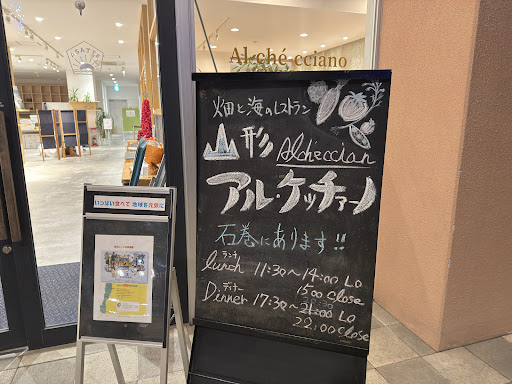 Al-ché-cciano
畑と海のレストラン
山形 Alcheccian
アル・ケッチァーノ
石巻にあります!!
ランチ
lunch 11:30～14:00 LO
15:00 Close
ディナー
Dinner 17:30～21:00 LO
22:00 Close
いっぱい食べて 地球を元気に